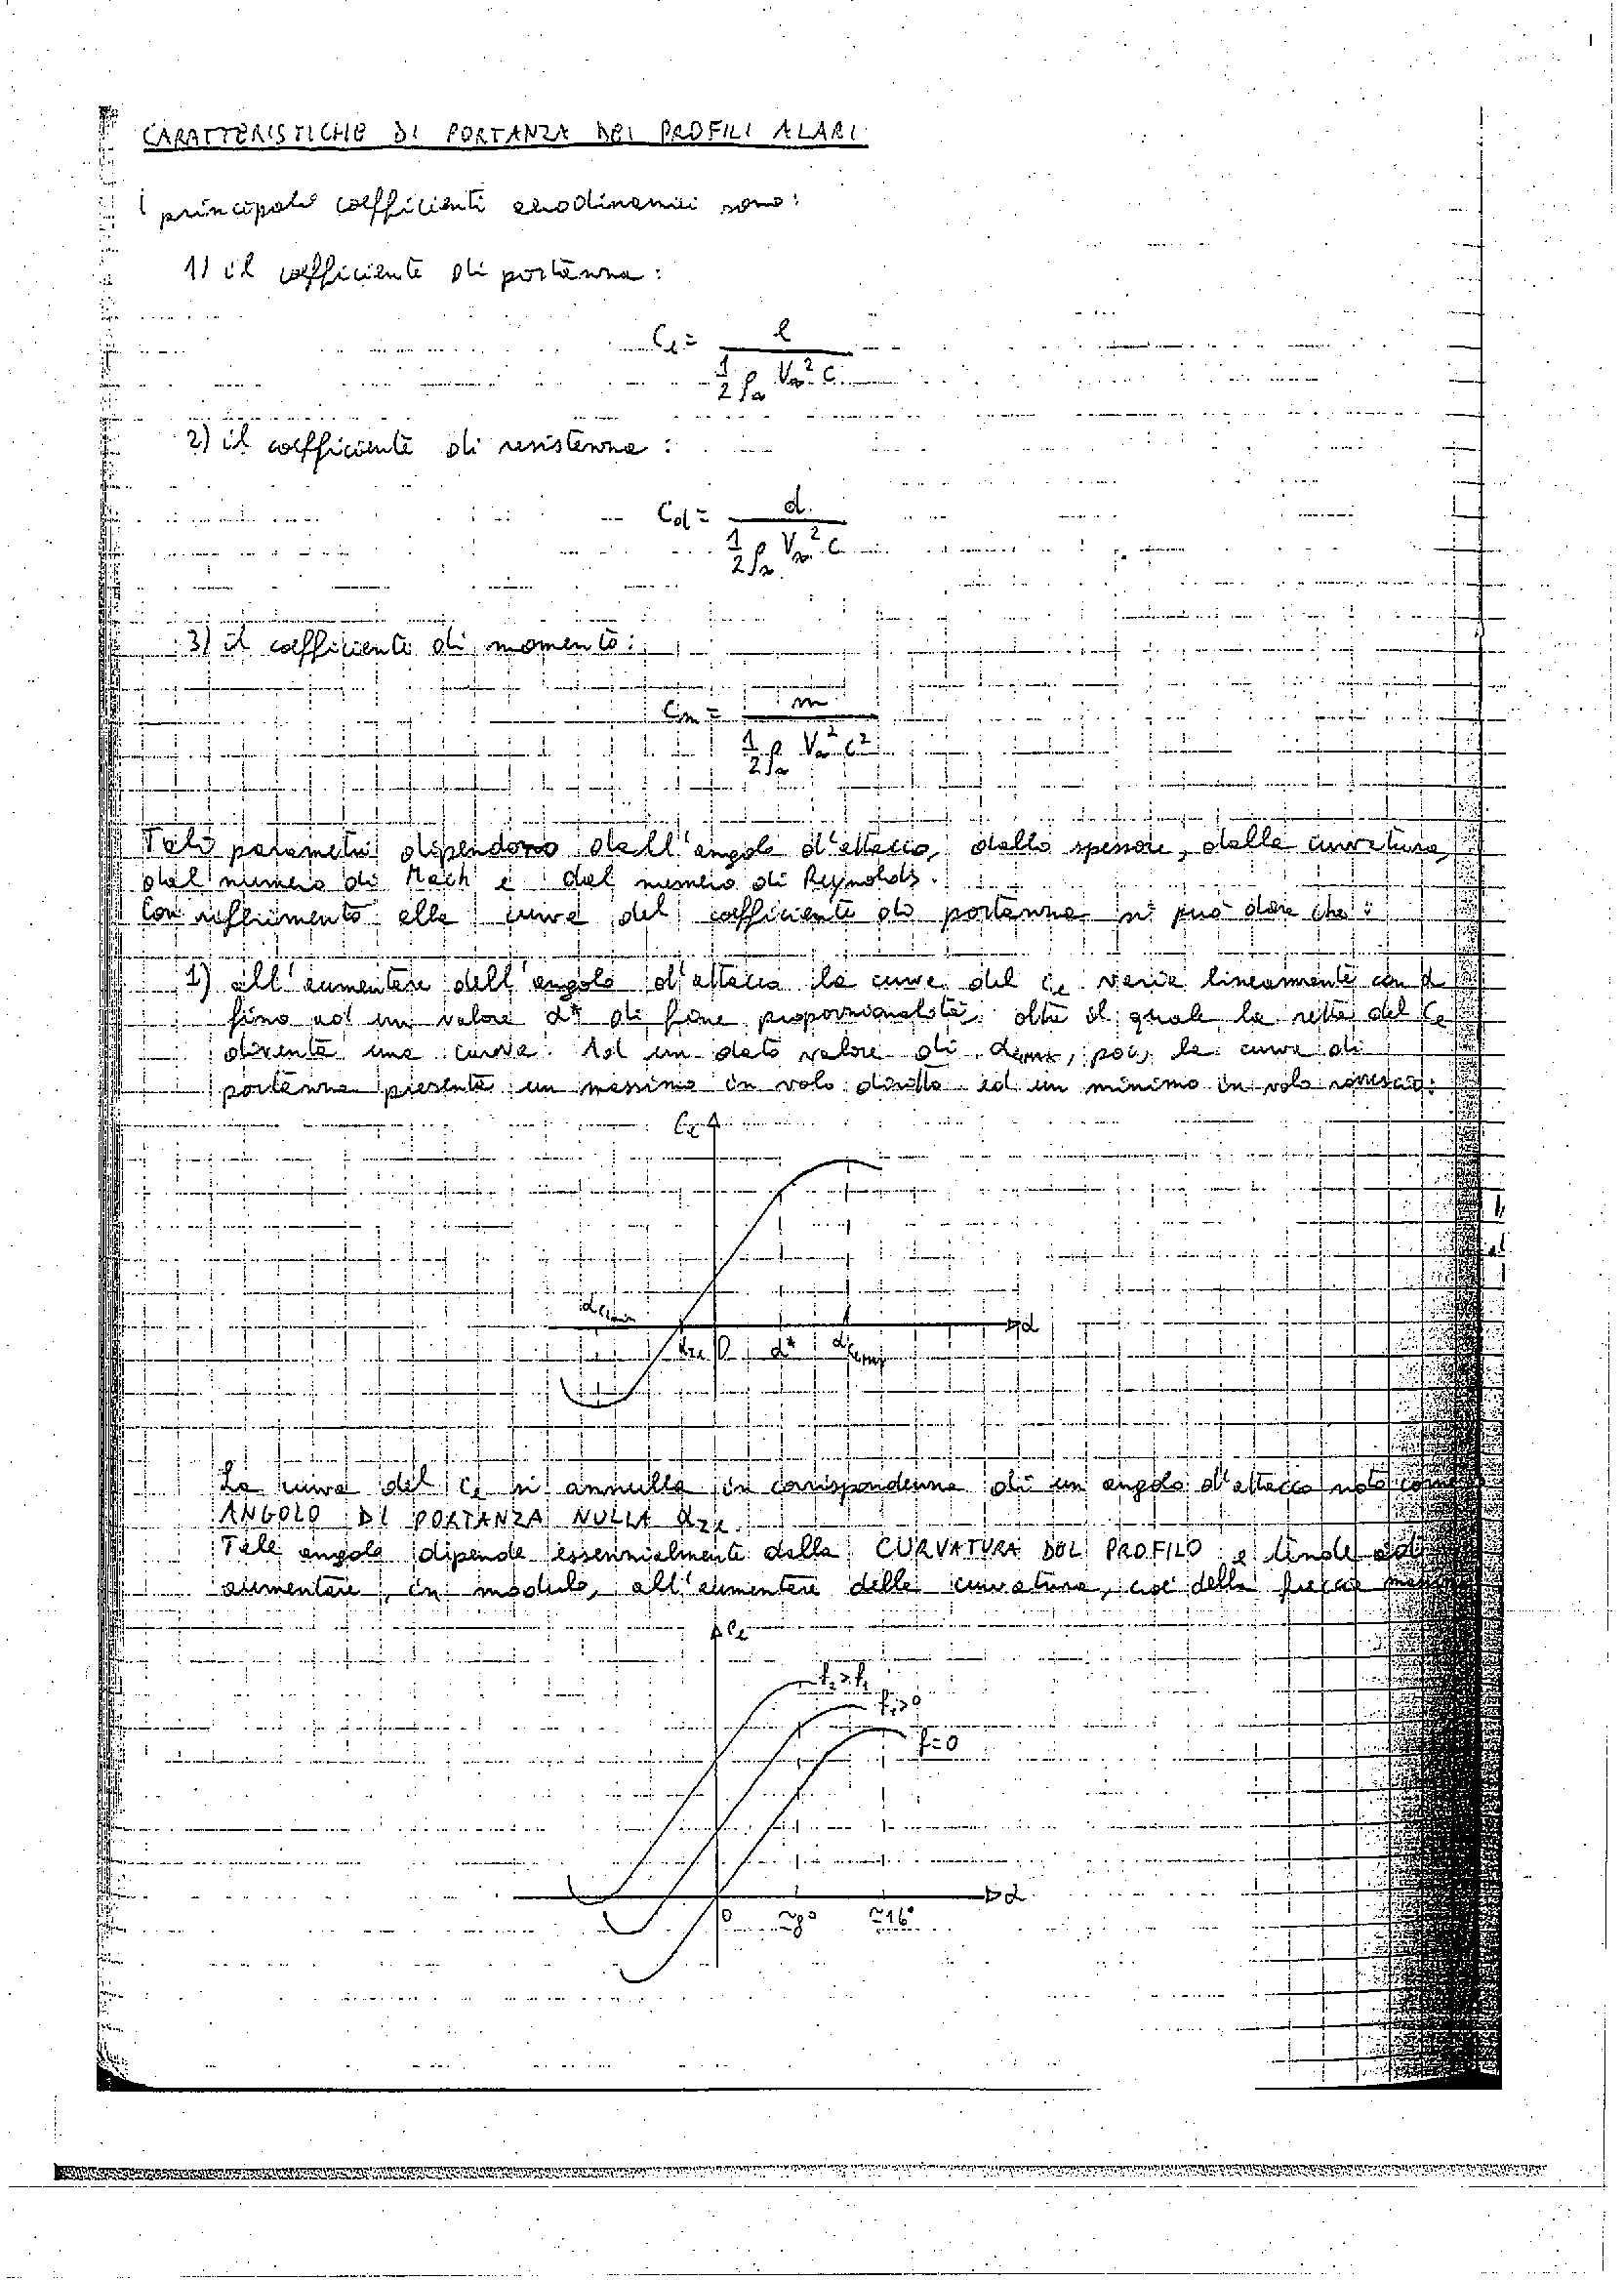 CARATTERISTICHE DI PORTANZA DEI PROFILI ALARI
I principali coefficienti aerodinamici sono:
1) il coefficiente di portanza:
Cl = l / (1/2 ρ∞ V∞² c)
2) il coefficiente di resistenza:
Cd = d / (1/2 ρ∞ V∞² c)
3) il coefficiente di momento:
Cm = m / (1/2 ρ∞ V∞² c²)
Tali parametri dipendono dall'angolo d'attacco, dallo spessore, dalla curvatura,
dal numero di Mach e dal numero di Reynolds.
Con riferimento alla curva del coefficiente di portanza si può dire che:
1) all'aumentare dell'angolo d'attacco la curva del Cl varia linearmente con α
fino ad un valore α* di fine proporzionalità, oltre il quale la retta del Cl
diventa una curva. Ad un dato valore di αClmax, poi, la curva di
portanza presenta un massimo in volo diritto ed un minimo in volo rovescio:
Cl
αClmin
α
αzl 0 α* αClmax
La curva del Cl si annulla in corrispondenza di un angolo d'attacco noto come
ANGOLO DI PORTANZA NULLA αzl.
Tale angolo dipende essenzialmente dalla CURVATURA DEL PROFILO e tende ad
aumentare, in modulo, all'aumentare della curvatura, cioè della freccia massima
Cl
f2>f1
f1>0
f=0
α
0 ≃8° ≃16°